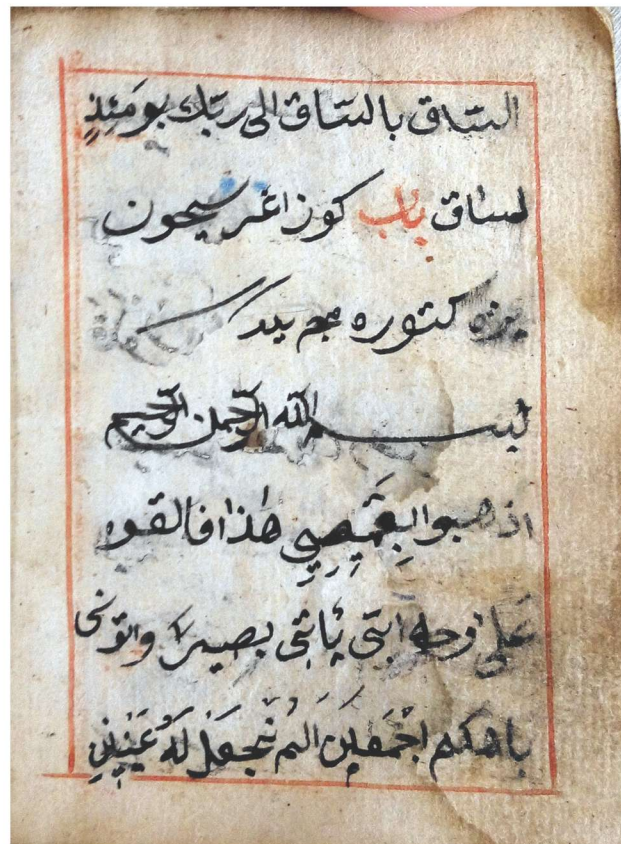 الساق بالساق الى ربك يومئذٍ
لساق باب كوز اغريسيچون
يزه كتوره مجربدر
بسم الله الرحمن الرحيم
اذهبوا بِقَمِيصِي هٰذا فالقوه
عَلى وجه ابتى يأتى بصيرًا واتونى
باهلكم اَجْمَعِينَ الم نَجعَل لَهُ عَيْنَيْنِ